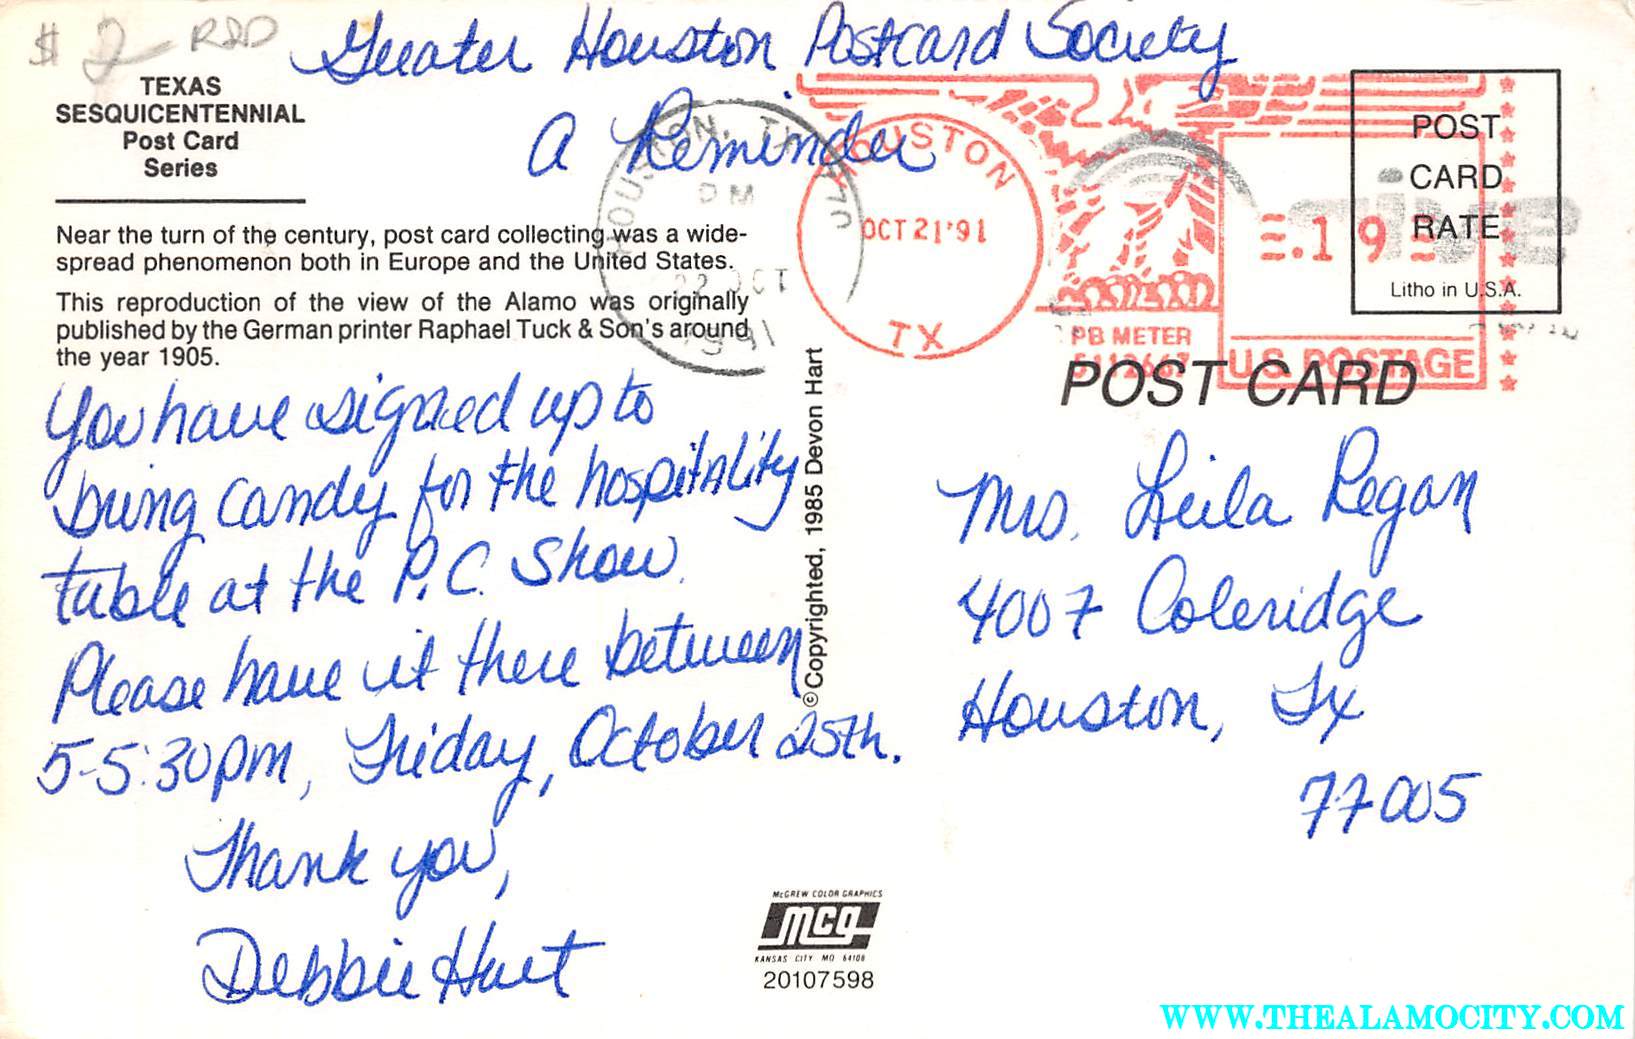 $ 2 R&D
Greater Houston Postcard Society
A Reminder
TEXAS
SESQUICENTENNIAL
Post Card
Series
Near the turn of the century, post card collecting was a wide-
spread phenomenon both in Europe and the United States.
This reproduction of the view of the Alamo was originally
published by the German printer Raphael Tuck & Son's around
the year 1905.
You have signed up to
bring candy for the hospitality
table at the P.C. Show.
Please have it there between
5-5:30pm, Friday, October 25th.
Thank you,
Debbie Hart
©Copyrighted, 1985 Devon Hart
HOUSTON, TX
PM
22 OCT
1991
HOUSTON
OCT 21 '91
TX
PB METER
5112667
.19
U.S. POSTAGE
POST
CARD
RATE
Litho in U.S.A.
POST CARD
Mrs. Leila Regan
4007 Coleridge
Houston, Tx
77005
McGREW COLOR GRAPHICS
mcg
KANSAS CITY MO 64108
20107598
WWW.THEALAMOCITY.COM